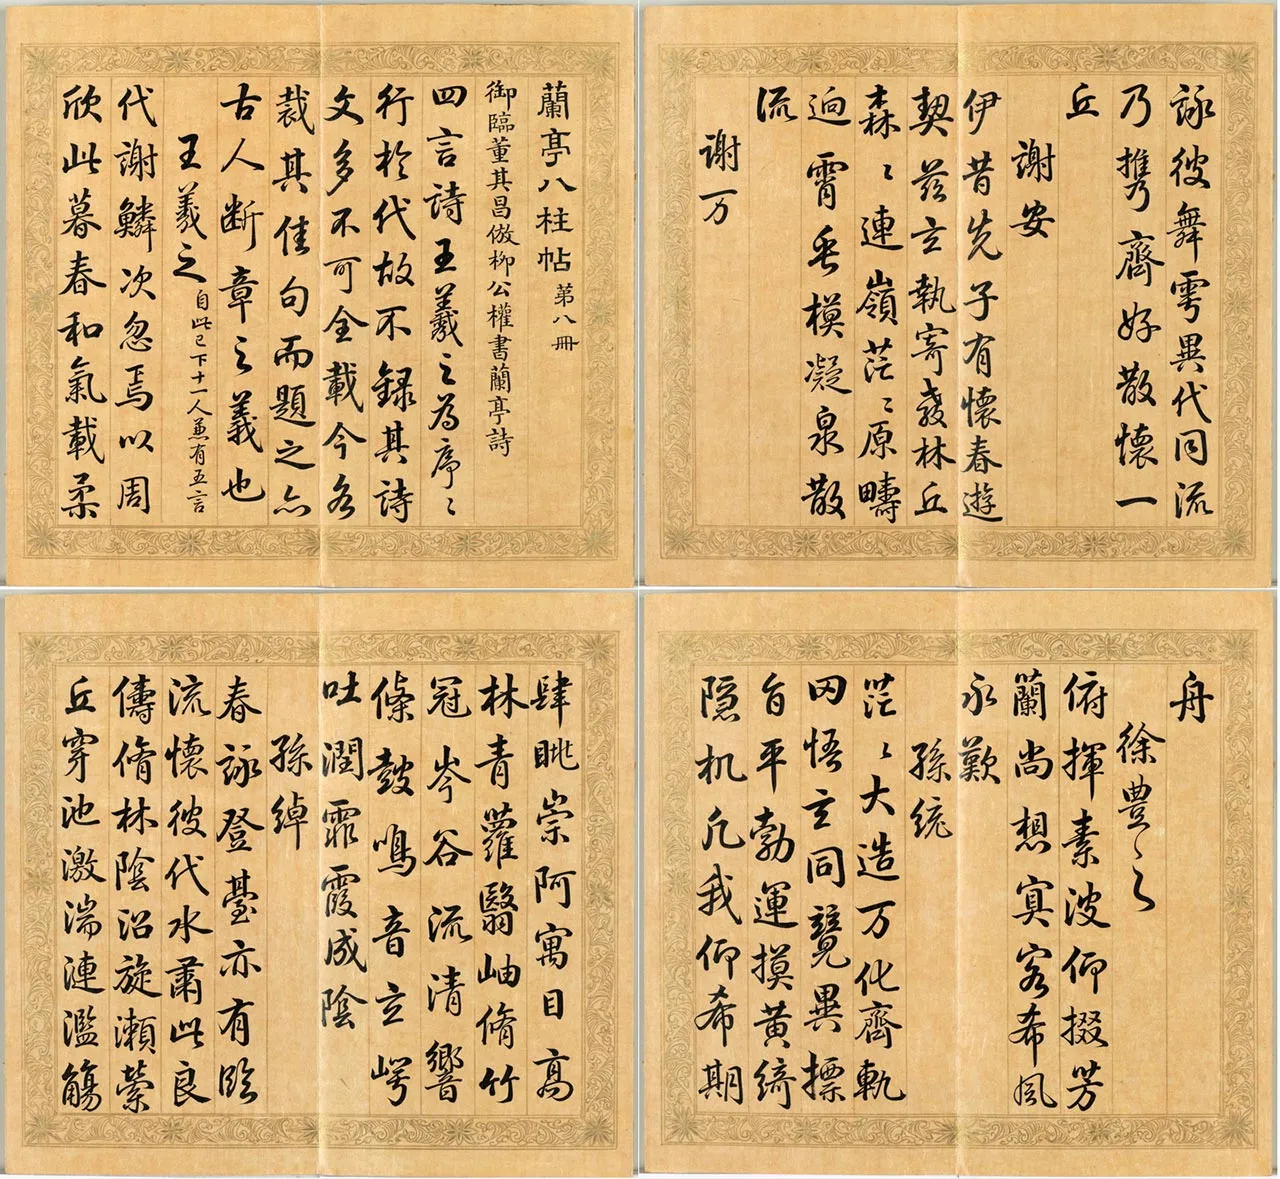 蘭亭八柱帖 第八冊
御臨董其昌倣柳公權書蘭亭詩
四言詩王羲之為序〻
行於代故不録其詩
文多不可全載今各
裁其佳句而題之亦
古人断章之義也
王羲之 自此已下十一人兼有五言
代謝鱗次忽焉以周
欣此暮春和氣載柔
詠彼舞雩異代同流
乃携齊好散懷一
丘
謝安
伊昔先子有懷春遊
契茲言執寄傲林丘
森〻連嶺茫〻原疇
逈霄垂模凝泉散
流
謝万
肆眺崇阿寓目高
林青蘿翳岫脩竹
冠岑谷流清響
條鼓鳴音玄崿
吐潤霏霞成陰
孫綽
春詠登臺亦有臨
流懷彼代水肅此良
儔脩林陰沼旋瀨縈
丘穿池激湍連濫觴
舟
徐豊之
俯揮素波仰掇芳
蘭尚想冥客希風
永歎
孫統
茫〻大造万化齊軌
罔悟玄同競異摽
旨平勃運摸黃綺
隐机凡我仰希期